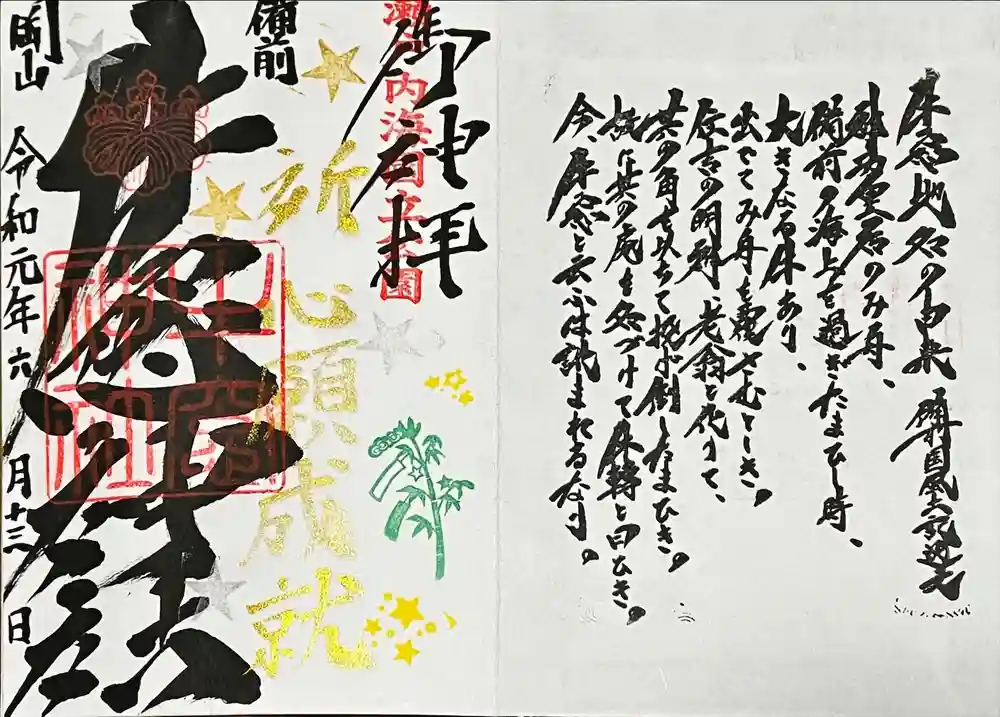 牛窓地名の由来 備前国風土記逸文
神功皇后のみ舟、
備前の海上を過ぎたまひし時、
大きなる牛あり、
出でてみ舟を覆さむとしき。
住吉の明神、老翁と化りて、
其の角を以ちて投げ倒したまひき。
故に其の処を名づけて牛轉と曰ひき。
今、牛窓と云ふは訛まれるなり。
御神拝
瀬戸内海国立公園
祈 心願成就
備前
牛窓神社
岡山 令和元年六月十三日